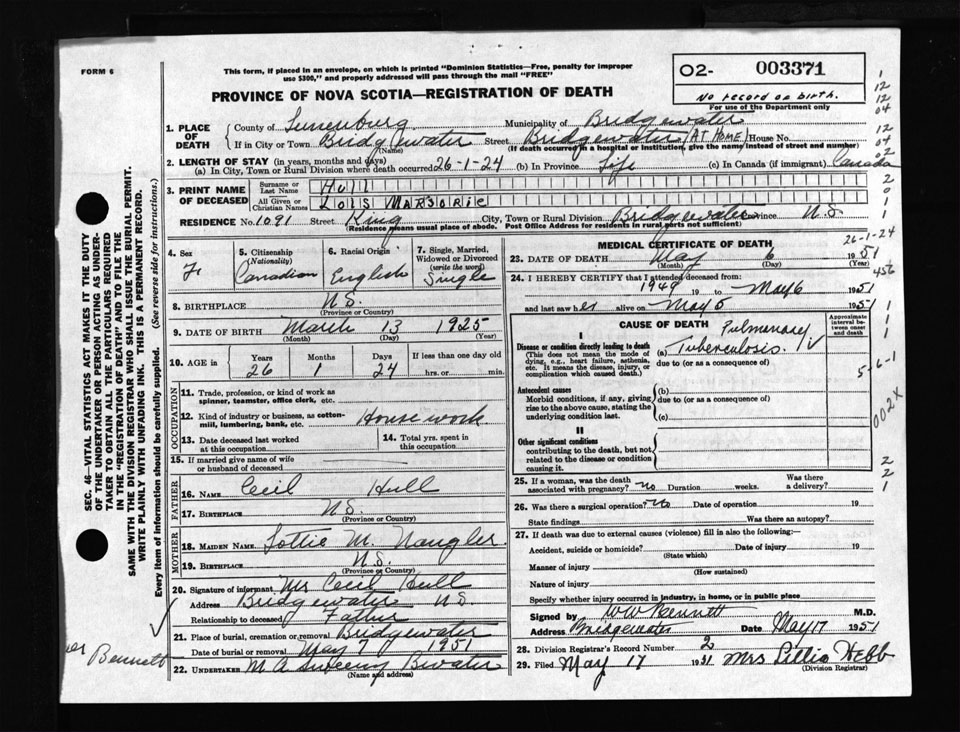 FORM 6
This form, if placed in an envelope, on which is printed "Dominion Statistics—Free, penalty for improper
use $300," and properly addressed will pass through the mail "FREE"
PROVINCE OF NOVA SCOTIA—REGISTRATION OF DEATH
O2- 003371
No record of birth.
For use of the Department only
1. PLACE OF DEATH
County of Lunenburg Municipality of Bridgewater
If in City or Town Bridgewater (Name) Street Bridgewater (AT HOME) House No.
(If death occurred in a hospital or institution, give the name instead of street and number)
2. LENGTH OF STAY (in years, months and days)
(a) In City, Town or Rural Division where death occurred 26-1-24 (b) In Province Life (c) In Canada (if immigrant) Canada
3. PRINT NAME OF DECEASED
Surname or Last Name Hull
All Given or Christian Names Lois Marjorie
RESIDENCE No. 1091 Street King City, Town or Rural Division Bridgewater Province N.S.
(Residence means usual place of abode. Post Office Address for residents in rural parts not sufficient)
4. Sex F.
5. Citizenship (Nationality) Canadian
6. Racial Origin English
7. Single, Married, Widowed or Divorced (write the word) Single
8. BIRTHPLACE N.S.
(Province or Country)
9. DATE OF BIRTH March 13 1925
(Month) (Day) (Year)
10. AGE in Years 26 Months 1 Days 24 If less than one day old hrs. or min.
OCCUPATION
11. Trade, profession, or kind of work as
spinner, teamster, office clerk, etc.
12. Kind of industry or business, as cotton-
mill, lumbering, bank, etc. House work
13. Date deceased last worked
at this occupation
14. Total yrs. spent in
this occupation
15. If married give name of wife
or husband of deceased
FATHER
16. NAME Cecil Hull
17. BIRTHPLACE N.S.
(Province or Country)
MOTHER
18. MAIDEN NAME Lottie M. Naugler
19. BIRTHPLACE N.S.
(Province or Country)
20. Signature of informant Mr Cecil Hull
Address Bridgewater N.S.
Relationship to deceased Father
21. Place of burial, cremation or removal Bridgewater
Date of burial or removal May 7 1951
22. UNDERTAKER M A Sweeny Bwater
(Name and address)
MEDICAL CERTIFICATE OF DEATH
26-1-24
23. DATE OF DEATH May 6 1951
(Month) (Day) (Year)
24. I HEREBY CERTIFY that I attended deceased from
1949 to May 6 1951
and last saw h er alive on May 5 1951
456
CAUSE OF DEATH
Approximate interval between onset and death
I
Disease or condition directly leading to death
(This does not mean the mode of dying, e.g., heart failure, asthenia, etc. It means the disease, injury, or complication which caused death.)
(a) Pulmonary Tuberculosis.
due to (or as a consequence of)
Antecedent causes
Morbid conditions, if any, giving rise to the above cause, stating the underlying condition last.
(b)
due to (or as a consequence of)
(c)
II
Other significant conditions
contributing to the death, but not related to the disease or condition causing it.
5-6-1
002X
25. If a woman, was the death
associated with pregnancy? no Duration weeks. Was there a delivery?
26. Was there a surgical operation? no Date of operation 19
State findings Was there an autopsy?
27. If death was due to external causes (violence) fill in also the following:
Accident, suicide or homicide? Date of injury 19
(State which)
Manner of injury
(How sustained)
Nature of injury
Specify whether injury occurred in industry, in home, or in public place
Signed by W W Bennett M.D.
Address Bridgewater Date May 17 1951
28. Division Registrar's Record Number 2
29. Filed May 17 1951 Mrs Lillia Webb
(Division Registrar)
SEC. 46—VITAL STATISTICS ACT MAKES IT THE DUTY
OF THE UNDERTAKER OR PERSON ACTING AS UNDER-
TAKER TO OBTAIN ALL THE PARTICULARS REQUIRED
IN THE "REGISTRATION OF DEATH" AND TO FILE THE
SAME WITH THE DIVISION REGISTRAR WHO SHALL ISSUE THE BURIAL PERMIT.
WRITE PLAINLY WITH UNFADING INK. THIS IS A PERMANENT RECORD.
Every item of information should be carefully supplied. (See reverse side for instructions.)
Bennett
1
12
12
04
12
04
02
2
0
1
1
1
1
1
2
2
1